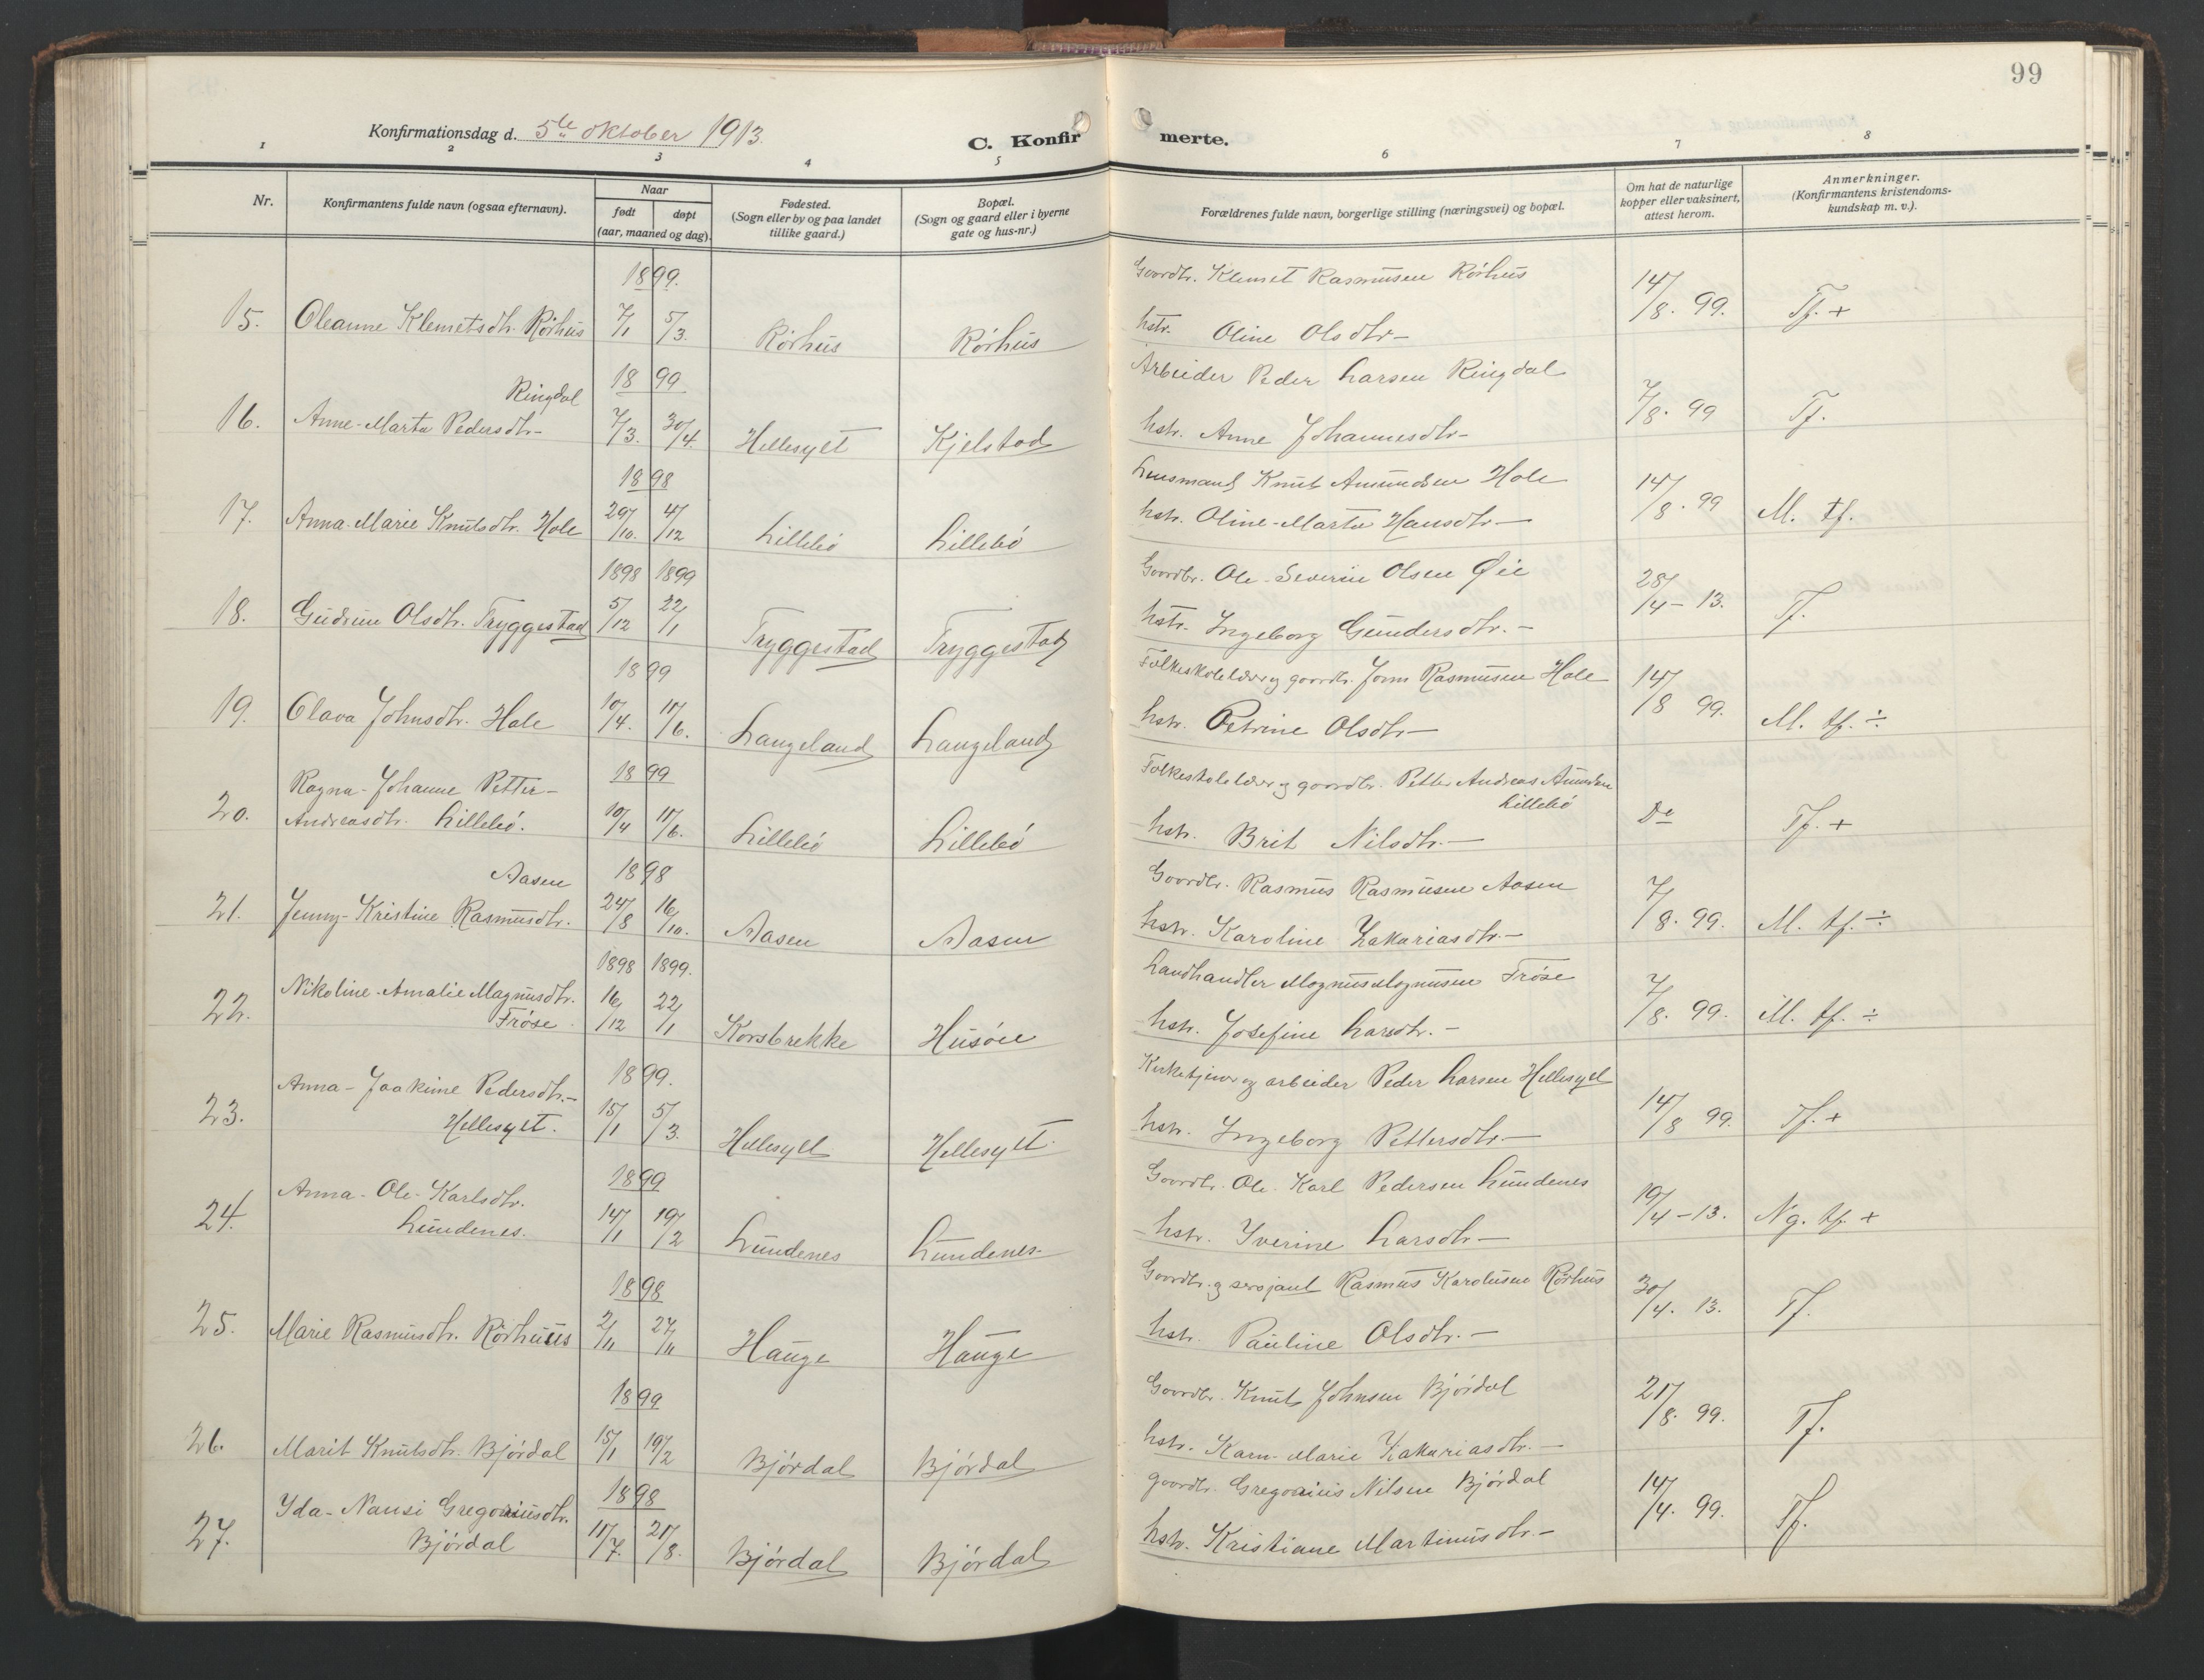 99
Konfirmationsdag d. 5te oktober 1913.
C. Konfirmerte.
1 2 3 4 5 6 7 8
Nr.
Konfirmantens fulde navn (ogsaa efternavn).
Naar
født døpt
(aar, maaned og dag).
Fødested.
(Sogn eller by og paa landet
tillike gaard.)
Bopæl.
(Sogn og gaard eller i byerne
gate og hus-nr.)
Forældrenes fulde navn, borgerlige stilling (næringsvei) og bopæl.
Om hat de naturlige
kopper eller vaksinert,
attest herom.
Anmerkninger.
(Konfirmantens kristendoms-
kundskap m. v.).
1899. Gaardbr. Klemet Rasmusen Rørhus
15. Oleanne Klemetsdtr. Rørhus 7/1 5/3. Rørhus Rørhus hstr. Oline Olsdtr- 14/8. 99. Tf. +
Ringdal 1899 Arbeider Peder Larsen Ringdal
16. Anne-Marta Pedersdtr- 7/3. 30/4. Hellesylt Kjelstad hstr. Anne Johannesdtr- 7/8. 99 Tf.
1898 Lensmand Knut Amundsen Hole
17. Anna-Marie Knutsdtr. Hole 29/10. 4/12 Lillebø Lillebø hstr. Oline-Marta Hansdtr- 14/8. 99 M. tf.
1898 1899 Gaardbr. Ole-Severin Olsen Øie
18. Gudrun Olsdtr. Tryggestad 5/12 22/1 Tryggestad Tryggestad hstr. Ingeborg Gundersdtr.- 28/4-13. Tf.
1899 Folkeskolelærer og gaardbr. Jonn Rasmusen Hole
19. Olava Johnsdtr. Hole 10/4. 11/6. Langeland Langeland hstr. Petrine Olsdtr- 14/8 99. M. tf. ÷
Ragna-Johanne Petter- 1899 Folkeskolelærer og gaardbr. Petter Andreas Amundsen
Lillebø
20. Andreasdtr. Lillebø. 10/4 11/6. Lillebø Lillebø hstr. Brit Nilsdtr.- Do Tf. +
Aasen 1898 Gaardbr. Rasmus Rasmusen Aasen
21. Jenny-Kristine Rasmusdtr. 24/8 16/10. Aasen Aasen hstr. Karoline Zakariasdtr.- 7/8. 99. M. tf. ÷
Nikoline-Amalie Magnusdtr. 1898 1899. Landhandler Magnus Magnusen Frøse
22. Frøse 16/12 22/1 Korsbrekke Husøen hstr. Josefine Larsdtr.- 7/8. 99. M. tf. ÷
Anna-Joakime Pedersdtr.- 1899. Kirketjener og arbeider Peder Larsen Hellesylt
23. Hellesylt. 15/1 5/3. Hellesylt Hellesylt. hstr. Ingeborg Pettersdtr- 14/8 99. Tf. +
Anna-Ole-Karlsdtr. 1899 Gaardbr. Ole-Karl Pedersen Lundenes
24. Lundenes. 14/1 19/2 Lundenes Lundenes hstr. Iverine Larsdtr- 19/4-13. Ng. tf. +
1898 Gaardbr. og sersjant Rasmus Karolusen Rørhus
25. Marie Rasmusdtr. Rørhus 2/11 27/11 Hauge Hauge hstr. Pauline Olsdtr.- 30/4. 13. Tf.
1899 Gaardbr. Knut Johnsen Bjørdal
26. Marit Knutsdtr. Bjørdal 15/1 19/2 Bjørdal Bjørdal hstr. Karn-Marie Zakariasdtr.- 21/8. 99. Tf.
Yda-Nansi Gregoriusdtr. 1898 gaardbr. Gregorius Nilsen Bjørdal
27. Bjørdal 11/7. 21/8. Bjørdal Bjørdal hstr. Kristiane Martinusdtr.- 14/4. 99. Tf.